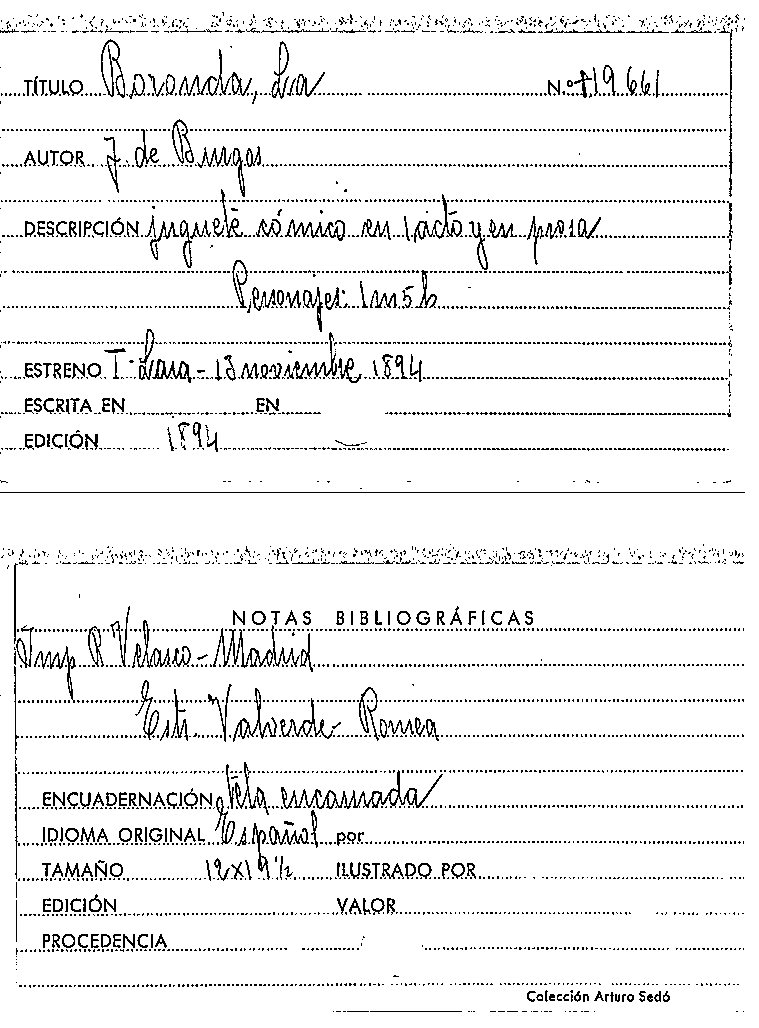 TÍTULO Boronda, La N.º 19661
AUTOR J de Burgos
DESCRIPCIÓN juguete cómico en 1 acto y en prosa
Personajes: 1m 5h
ESTRENO T. Lara - 13 noviembre 1894
ESCRITA EN EN
EDICIÓN 1894
NOTAS BIBLIOGRÁFICAS
Imp R Velasco - Madrid
Estr. Valverde - Romea
ENCUADERNACIÓN tela encarnada
IDIOMA ORIGINAL Español por
TAMAÑO 12x19½ ILUSTRADO POR
EDICIÓN VALOR
PROCEDENCIA
Colección Arturo Sedó